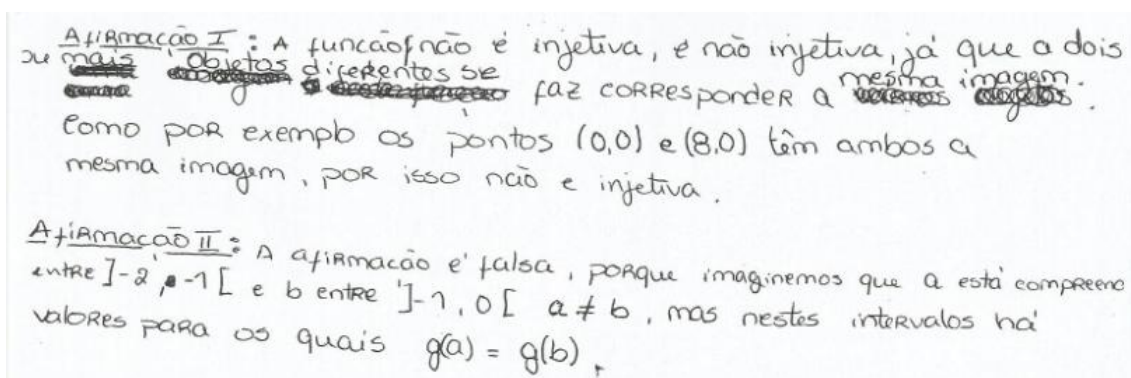 Afirmação I: A função f não é injetiva, é não injetiva, já que a dois
ou mais objetos diferentes se faz corresponder a mesma imagem.
Como por exemplo os pontos (0,0) e (8,0) têm ambos a
mesma imagem, por isso não e injetiva.
Afirmação II: A afirmação é falsa, porque imaginemos que a está compreend
entre ]-2,-1[ e b entre ]-1,0[ a ≠ b, mas nestes intervalos há
valores para os quais g(a) = g(b).